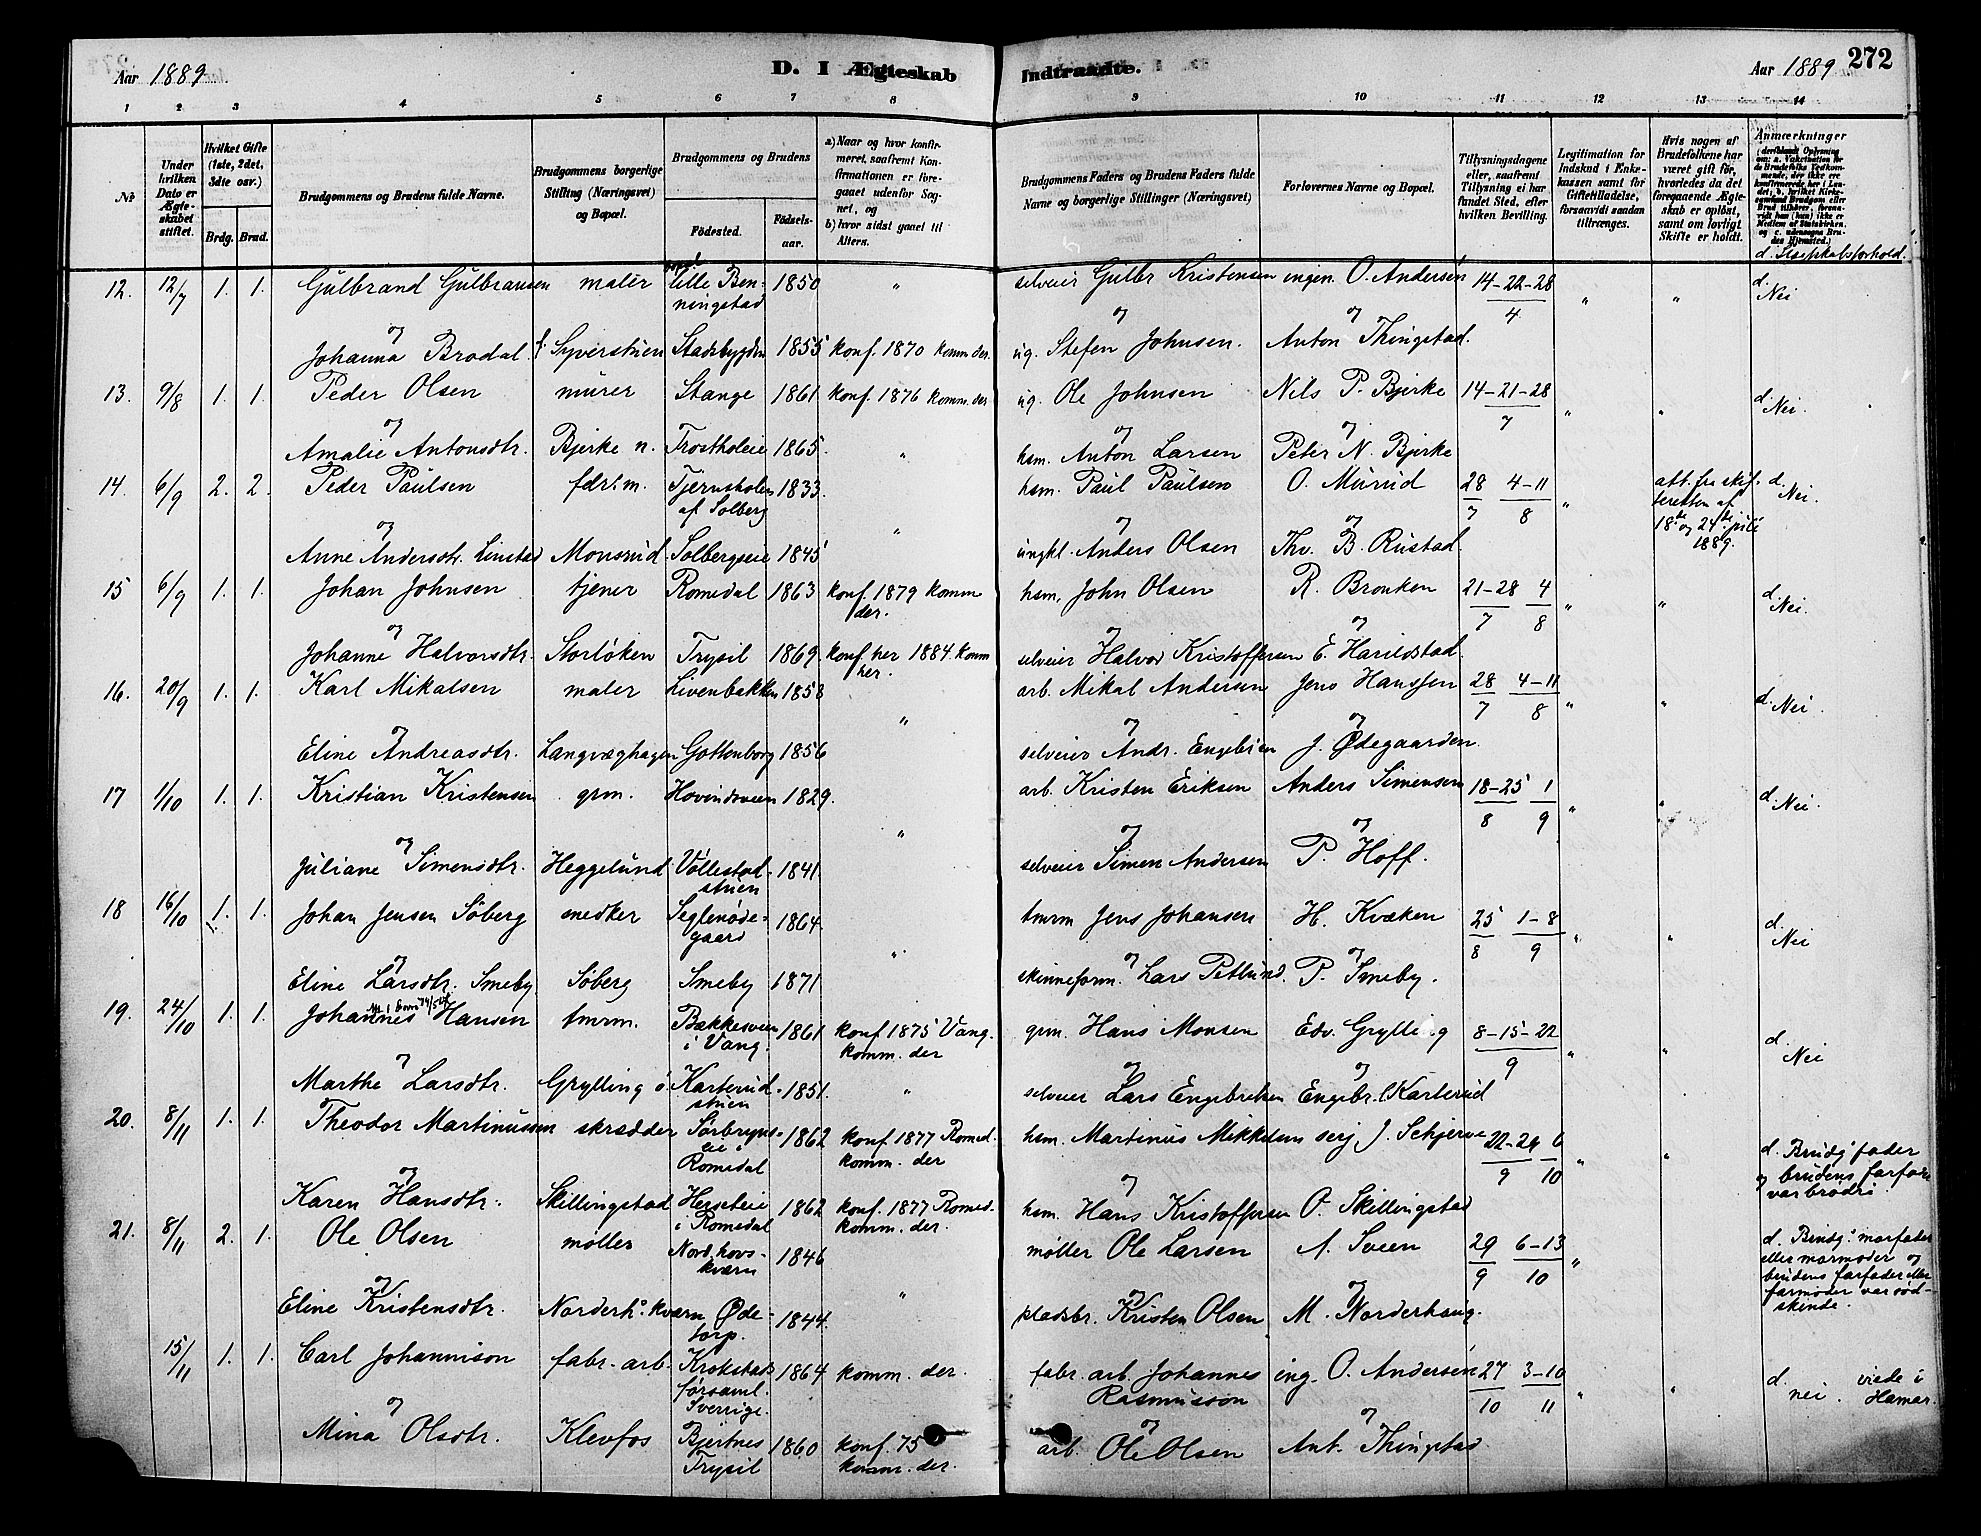 Aar 1889
D. I Ægteskab Indtraadte.
Aar 1889
272
1 2 3 4 5 6 7 8 9 10 11 12 13 14
No
Under hvilken Dato er Ægteskabet stiftet.
Hvilket Gifte (1ste, 2det, 3dte osv.)
Brdg. Brud.
Brudgommens og Brudens fulde Navne.
Brudgommens borgerlige Stilling (Næringsvei) og Bopæl.
Brudgommens og Brudens
Fødested.
Fødselsaar.
a) Naar og hvor konfirmeret, saafremt Konfirmationen er foregaaet udenfor Sognet, og
b) hvor sidst gaaet til Alters.
Brudgommens Faders og Brudens Faders fulde Navne og borgerlige Stillinger (Næringsvei)
Forlovernes Navne og Bopæl.
Tillysningsdagene eller, saafremt Tillysning ei har fundet Sted, efter hvilken Bevilling.
Legitimation for Indskud i Enkekassen samt for Giftetilladelse, forsaavidt saadan tiltrænges.
Hvis nogen af Brudefolkene har været gift før, hvorledes da det foregaaende Ægteskab er opløst, samt om lovligt Skifte er holdt.
Anmærkninger
d. Slægtskabsforhold.
12. 12/7 1. 1. Gulbrand Gulbransen maler Lille Benningstad 1850 " selveier Gulbr Kristensen ingen. O. Andersen 14-22-28/4 " " d. Nei
og og og
Johanna Brodal. Syverstuen Stadsbygden 1855 konf. 1870 komm der. ug. Stefen Johnsen. Anton Thingstad.
13. 9/8 1. 1. Peder Olsen murer Stange 1861 konf. 1876 komm. der ug. Ole Johnsen Nils P. Bjerke 14-21-28/7 " " d. Nei.
og og og
Amalie Antonsdtr. Bjerke n. Trostholeie 1865. " hsm. Anton Larsen Peter N. Bjerke
14. 6/9 2. 2. Peder Paulsen Tjernsholen af Solberg 1833. hsm. Paul Paulsen O. Murud 28/7 4-11/8 " att. fra skifteretten af 18de og 24de juli 1889. d. Nei.
og " og og
Anne Andersdtr. Linstad Monsrud Solbergseie 1845 ungkl. Anders Olsen Thv. B. Rustad.
15 6/9 1. 1. Johan Johnsen tjener Romedal 1863 konf. 1879 komm der. hsm. John Olsen R. Bronken 21-28/7 4/8 " " d. Nei.
og og og
Johanne Halvorsdtr. Storløken Trysil 1869. konf. her 1884. komm her. selveier Halvor Kristoffersen E. Harildstad.
16. 20/9 1. 1. Karl Mikalsen maler Livenbakken 1858 arb. Mikal Andersen Jens Hanssen 28/7 4-11/8 " " d. Nei.
og " og og
Eline Andreasdtr. Langvæghagen Gottenborg 1856 selveier Andr. Engebsen J. Ødegaarden
17 1/10 1. 1. Kristian Kristensen grm. Hovindsveen 1829. arb. Kristen Eriksen Anders Simensen 18-25/8 1/9 " " d. Nei.
og " og og
Juliane Simensdtr. Heggelund Vollestadstuen 1841. selveier Simen Andersen P. Hoff.
18 16/10 1. 1. Johan Jensen Søberg snedker Seglenødegaard 1864. tmrm Jens Johansen H. Kvæken 25/8 1-8/9 " " d. Nei
og " og og
Eline Larsdtr. Smeby. Søberg Smeby 1871 skinneform. Lars Petlund. P. Smeby.
19. 24/10 1. 1. Johannes Hansen tmrm. Bækkesveen i Vang. 1861 konf 1875 Vang. komm. der grm. Hans Monsen Edv. Grylling 8-15-22/9 " " d. Nei
og og og
Marthe Larsdtr. Grylling ø Karterudstuen 1851. " selveier Lars Engebretsen Engebr. Karterud
20. 8/11 1. 1. Theodor Martinussen skrædder Sørbrynseie i Romedal 1862 konf 1877 Romed. komm. der hsm. Martinus Mikkelsen serj. J. Schjerve 22-29/9 6/10 " " d. Brudg. fader og brudens farfader var brødre.
og og
Karen Hansdtr. Skillingstad Herseteie i Romedal 1862 konf. 1877 Romed. komm. der. hsm. Hans Kristoffersen O. Skillingstad
21. 8/11 2. 1. Ole Olsen møller Nord.hovskværn 1846 møller Ole Larsen A. Sveen 29/9 6-13/10 " d. Brudg. morfader eller mormoder og brudens farfader eller farmoder var sødskende.
og " og og
Eline Kristensdtr. Norderh. kværn Ødetorp. 1844. pladsbr. Kristen Olsen M. Norderhaug.
15/11 1. 1. Carl Johannison fabr.-arb. Krokstads forsaml. Sverrige. 1864 komm. der. fabr. arb. Johannes Rasmusson ing. O. Andersen 27/10 3-10/11 " " d. nei. viede i Hamar.
og og og
Mina Olsdtr. Klevfos Bjertnes Trysil 1860 konf. 75 komm. der. arb. Ole Olsen Ant. Thingstad